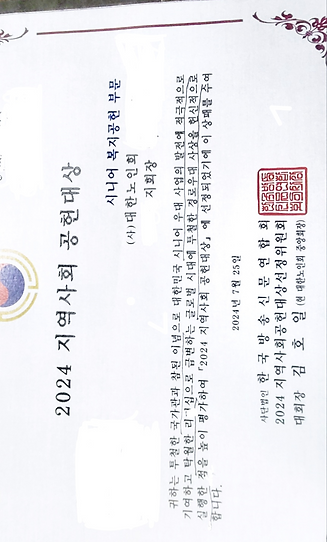 2024 지역사회 공헌대상
시니어 복지공헌 부문
(사)대한노인회
지회장
귀하는 투철한 국가관과 참된 이념으로 대한민국 시니어 우대 사업의 발전에 적극적으로
기여하고 탁월한 리더십으로 급변하는 글로벌 시대에 투철한 경로우대 사상을 헌신적으로
실행한 점을 높이 평가하여 「2024 지역사회 공헌대상」에 선정되었기에 이 상패를 주어
합니다.
2024년 7월 25일
사단법인 한국방송신문연합회
2024 지역사회공헌대상선정위원회
대회장 김호일 (현 대한노인회 중앙회장)